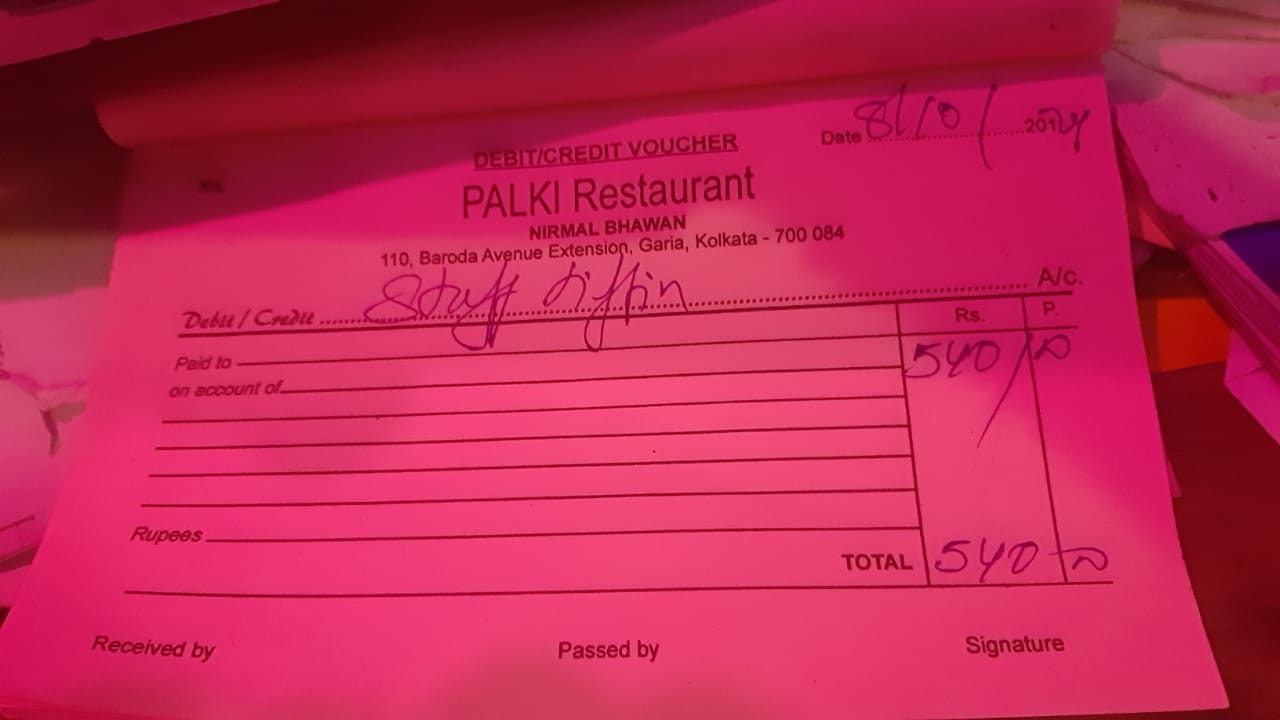 Date 8/10/2024
DEBIT/CREDIT VOUCHER
PALKI Restaurant
NIRMAL BHAWAN
110, Baroda Avenue Extension, Garia, Kolkata - 700 084
Debit / Credit Staff tiffin A/c.
Rs. P.
Paid to 540/00
on account of
Rupees
TOTAL 540 00
Received by Passed by Signature